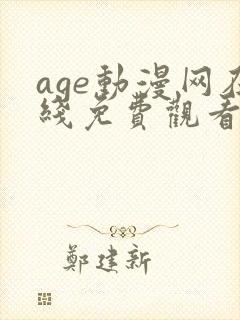 age動漫网在
綫免費觀看
鄭建新